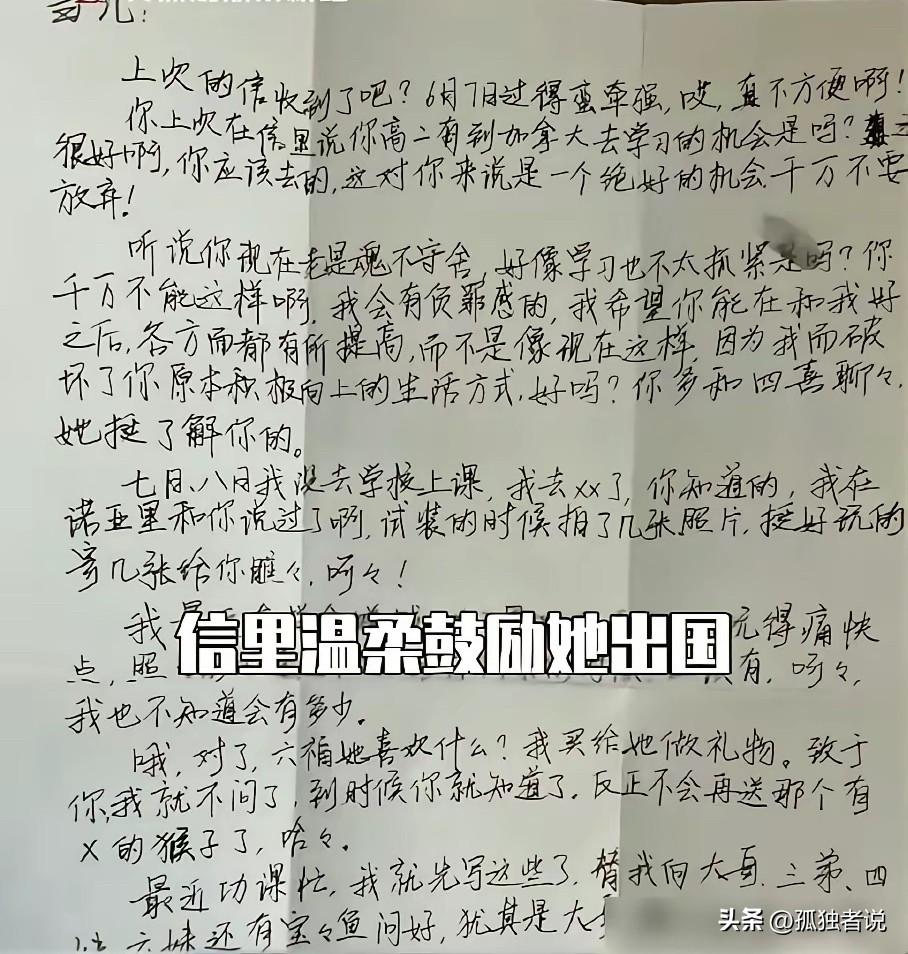 儿：
上次的信收到了吧？6月7日过得蛮牵强，哎，真不方便啊！
你上次在信里说你高二有到加拿大去学习的机会是吗？
很好啊，你应该去的，这对你来说是一个绝好的机会千万不要
放弃！
听说你现在老是魂不守舍，好像学习也不太抓紧是吗？你
千万不能这样啊，我会有负罪感的，我希望你能在和我好
之后，各方面都有所提高，而不是像现在这样，因为我而破
坏了你原本积极向上的生活方式，好吗？你多和四喜聊々，
她挺了解你的。
七日、八日我没去学校上课，我去xx了，你知道的，我在
诺亚里和你说过了啊，试装的时候拍了几张照片，挺好玩的
寄几张给你瞧々，呵々！
我 玩得痛快
信里温柔鼓励她出国
点，照 有，呵々，
我也不知道会有多少。
哦，对了，六福她喜欢什么？我买给她做礼物。致于
你，我就不问了，到时候你就知道了，反正不会再送那个有
X的猴子了，哈々。
最近功课忙，我就先写这些了，替我向大 三弟、四
六妹还有宝々鱼问好，犹其是大
头条 @孤独者说